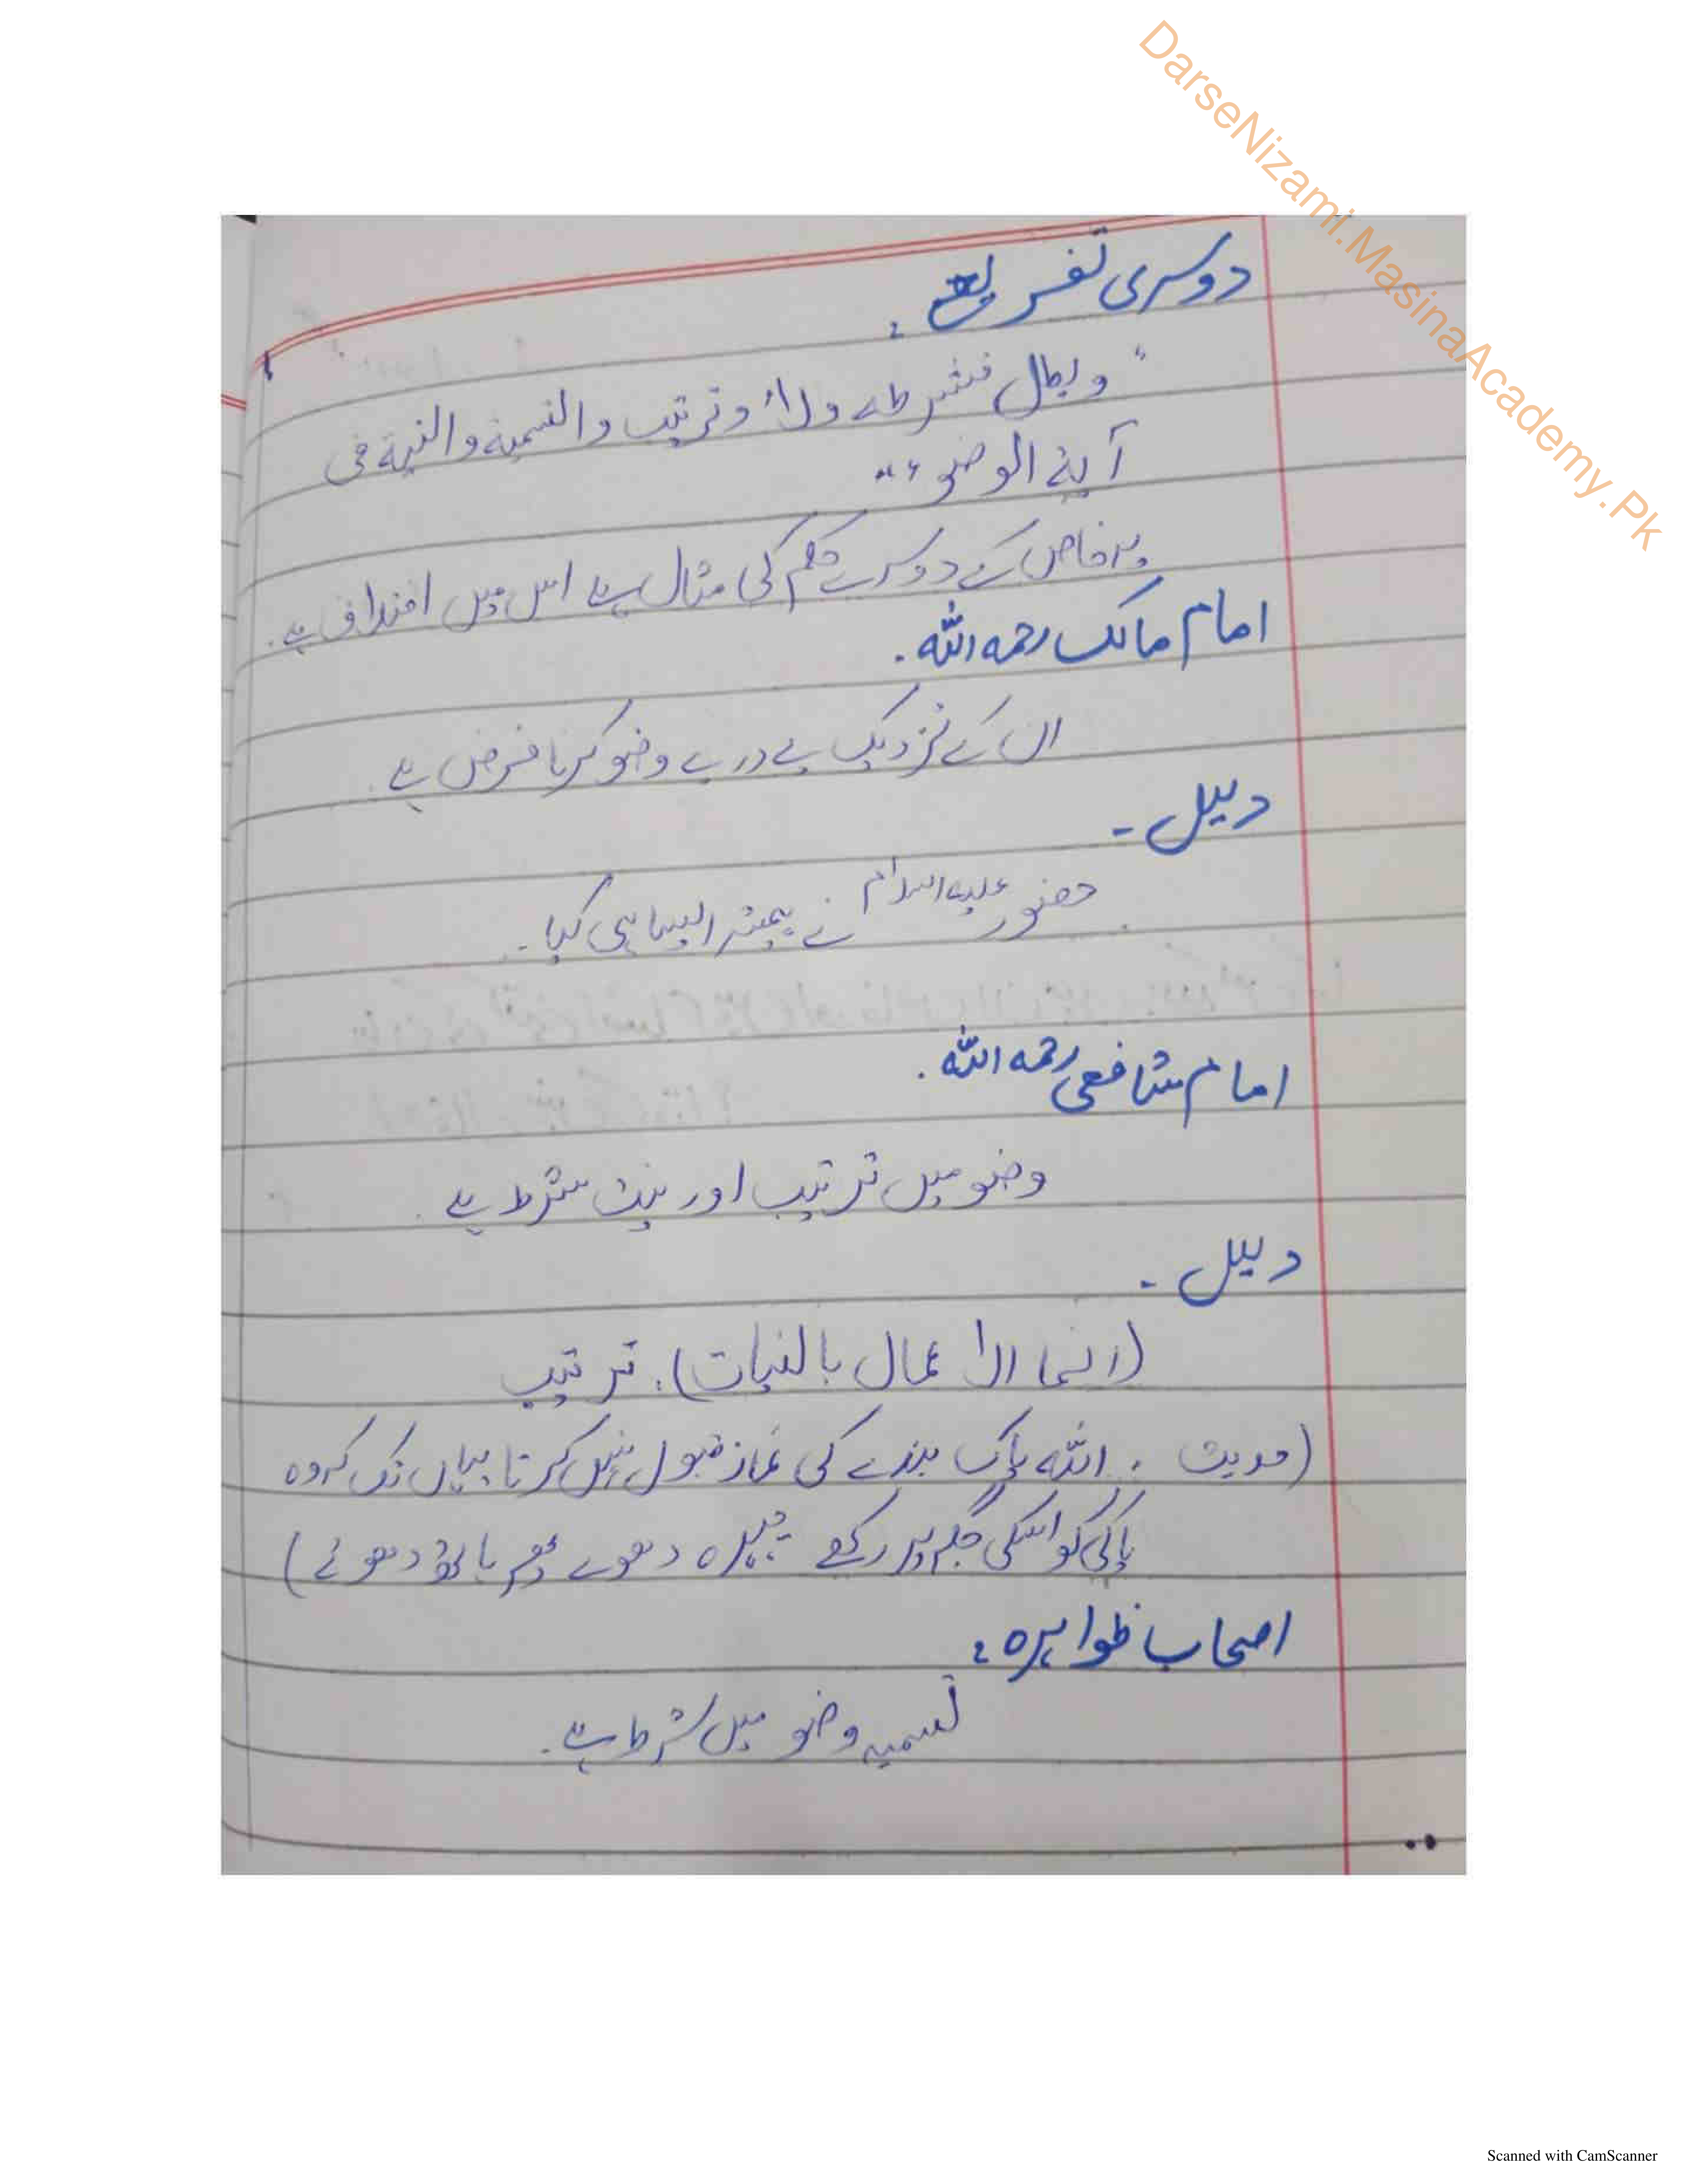 DarseNizami.MasinaAcademy.Pk
دوسری تفریع :
"وبطل شرطہ ولاء وترتیب والتسمیۃ والنیۃ فی
آیۃ الوضوء"
یہ خاص کے دوسرے حکم کی مثال ہے اس میں اختلاف ہے۔
امام مالک رحمہ اللہ۔
ان کے نزدیک پے در پے وضو کرنا فرض ہے۔
دلیل۔
حضور علیہ السلام نے ہمیشہ ایسا ہی کیا۔
امام شافعی رحمہ اللہ۔
وضو میں ترتیب اور نیت شرط ہے۔
دلیل۔
(انما الاعمال بالنیات)۔ ترتیب
(حدیث : اللہ پاک بندے کی نماز قبول نہیں کرتا یہاں تک کہ وہ
پاکی کو اسکی جگہ پر رکھے چہرہ دھوے پھر ہاتھ دھوئے)
اصحاب ظواہرہ :
تسمیہ وضو میں شرط ہے۔
Scanned with CamScanner